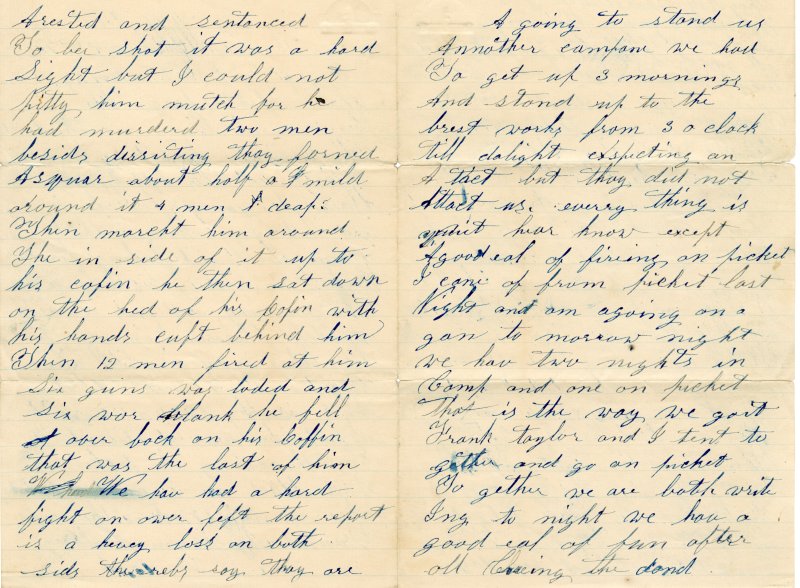 Arested and sentanced
To bee shot it was a hard
Sight but I could not
pitty him mutch for he
had murderd two men
besids dissirting thay formed
A squar about half a mild
around it 4 men deap
Then marcht him around
The in side of it up to
his cofin he then sat down
on the hed of his Cofin with
his hands cuft behind him
Then 12 men fired at him
Six guns was loded and
Six wor blank he fell
over back on his Coffin
that was the last of him
We hav had a hard
fight on ower left the report
is a hevey loss on both
sids the rebs say thay are
A going to stand us
Annother campane we had
To get up 3 mornings
And stand up to the
brest works from 3 o clock
till dalight expecting an
A tact but thay did not
Attact us. everry thing is
quiit hear know except
A good eal of fireing on picket
I came of from picket last
Night and am agoing on a
gan to morrow night
we hav two nights in
Camp and one on picket
That is the way we go it
Frank taylor and I tent to
gether and go on picket
To gether we are both write
Ing to night we hav a
good eal of fun after
all the